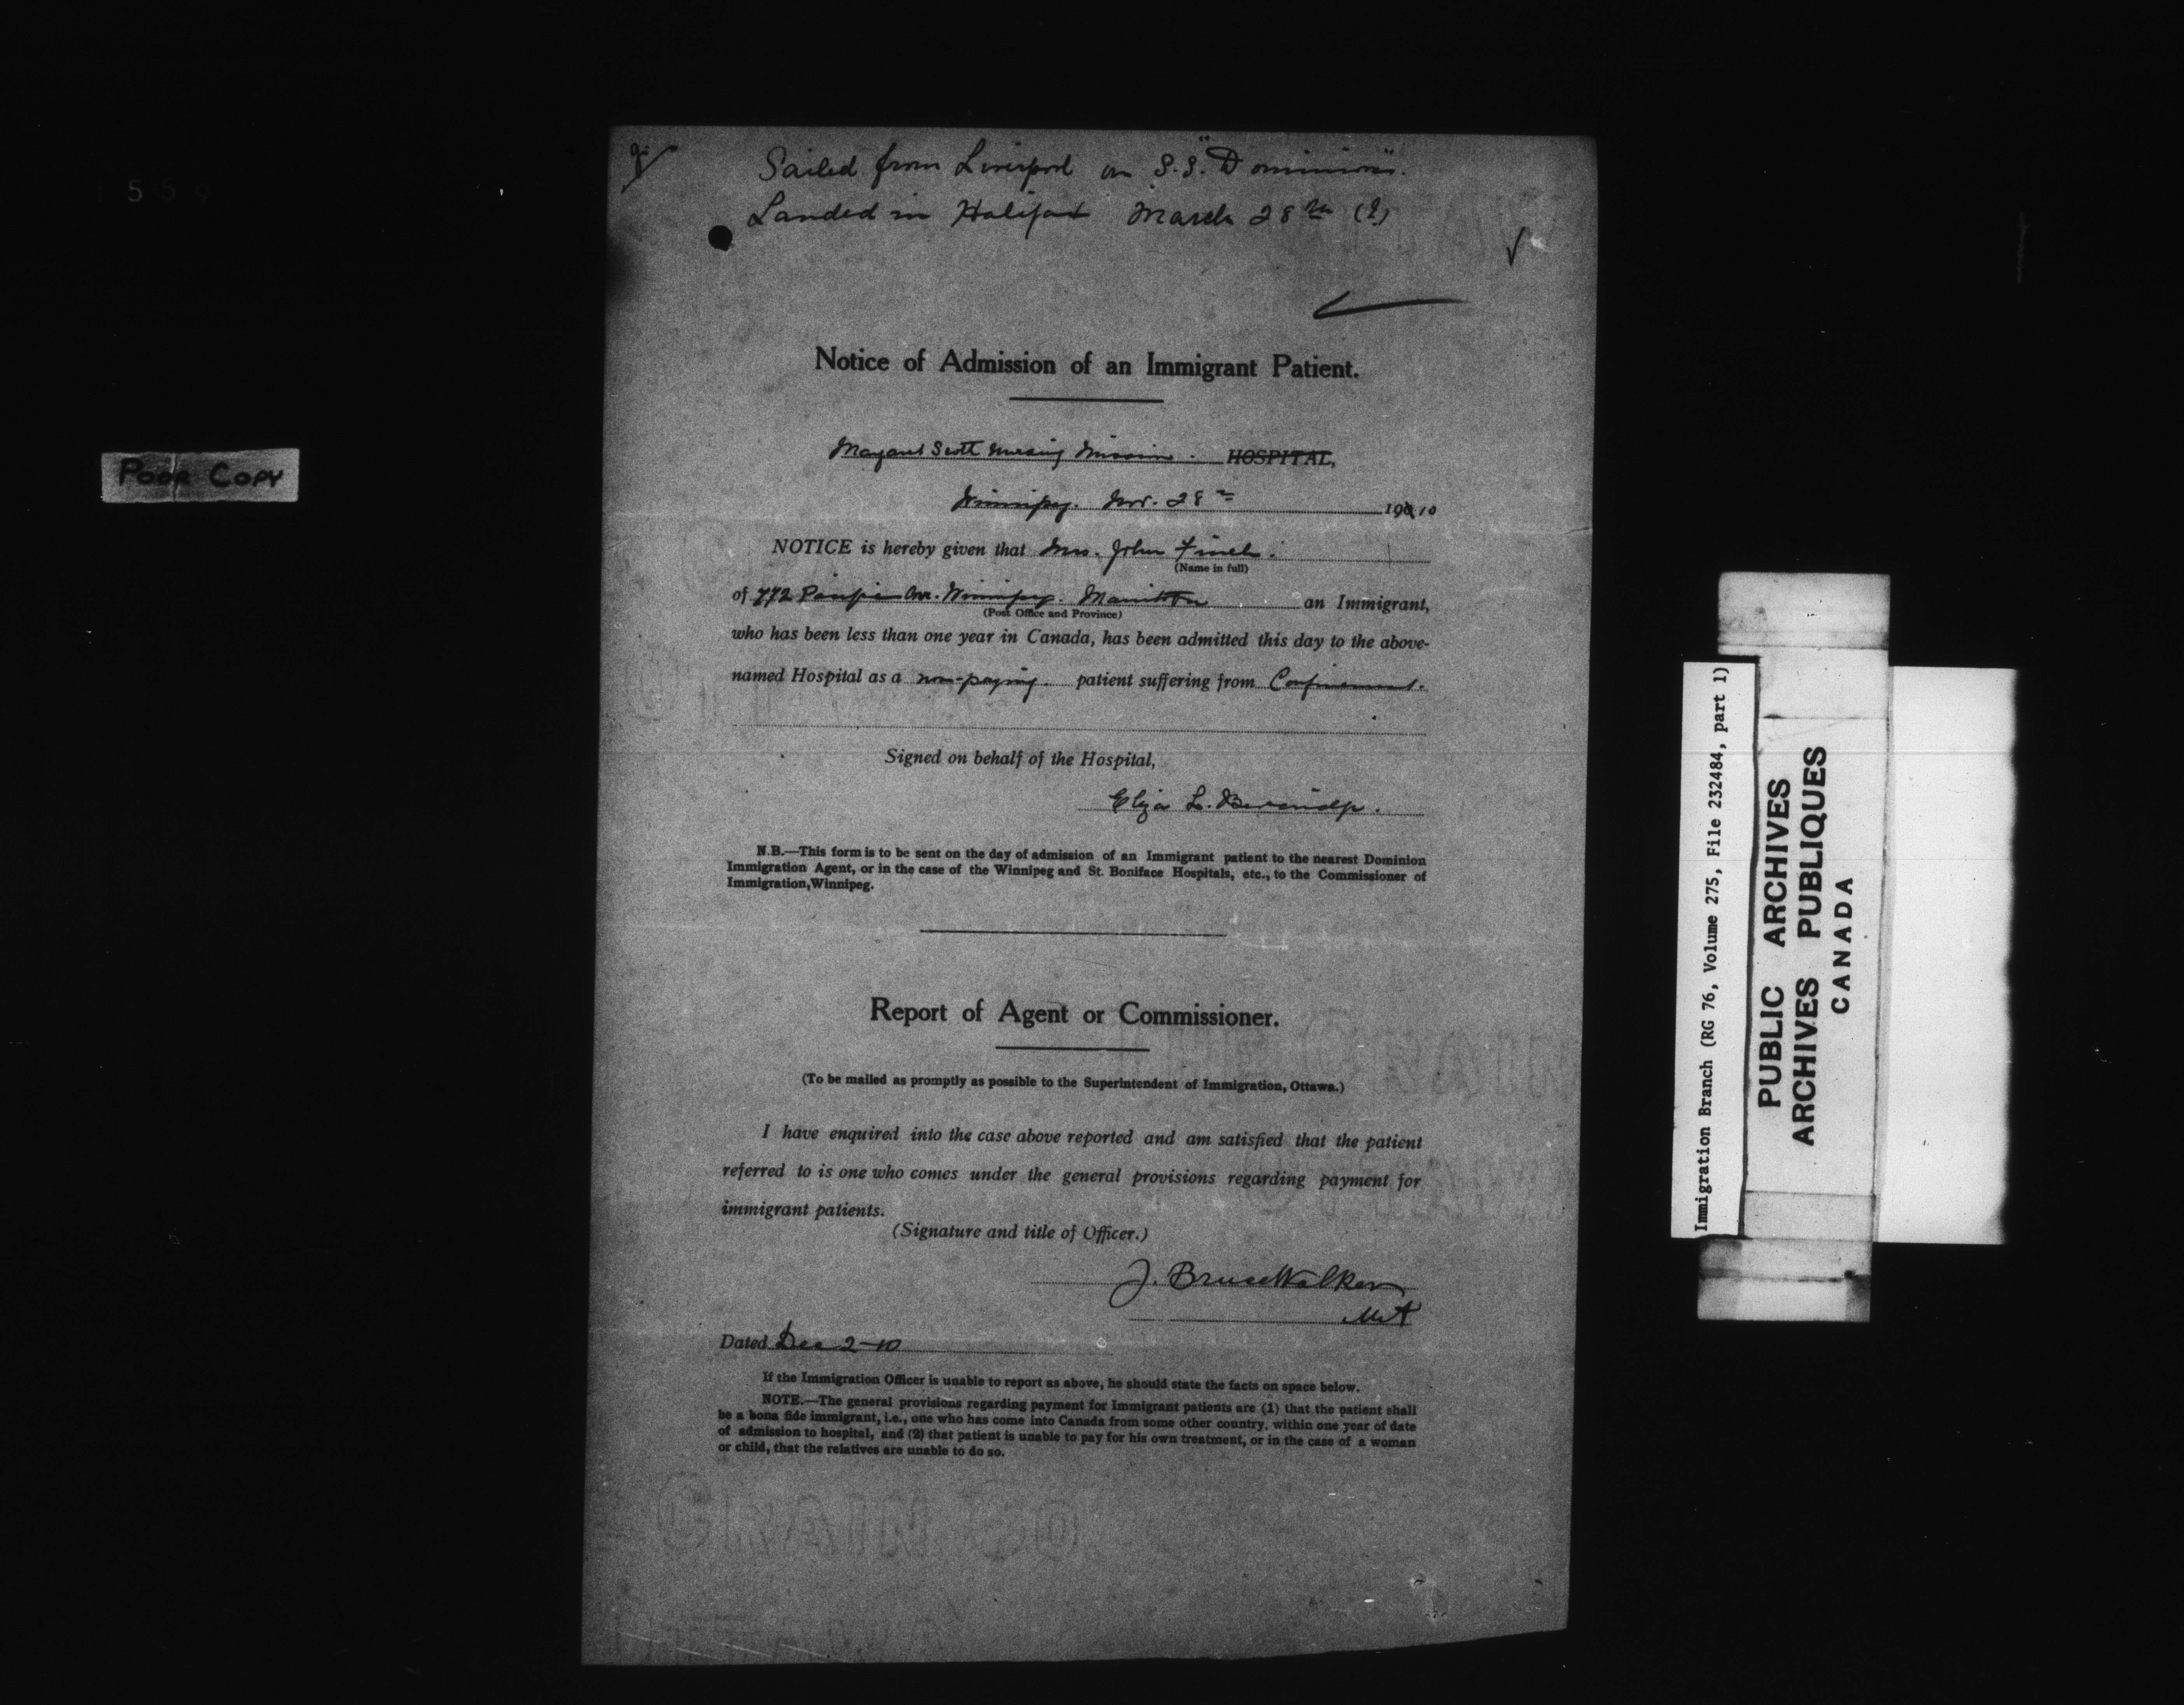 Sailed from Liverpool on S.S. "Dominion".
Landed in Halifax March 28th (?)
Notice of Admission of an Immigrant Patient.
Margaret Scott Nursing Mission. HOSPITAL,
Winnipeg. Nov. 28th 1910
NOTICE is hereby given that Mrs. John Finch.
(Name in full)
of 772 Pacific Ave. Winnipeg. Manitoba an Immigrant,
(Post Office and Province)
who has been less than one year in Canada, has been admitted this day to the above-
named Hospital as a non-paying. patient suffering from Confinement.
Signed on behalf of the Hospital,
Eliza L. Beveridge.
N.B.—This form is to be sent on the day of admission of an Immigrant patient to the nearest Dominion
Immigration Agent, or in the case of the Winnipeg and St. Boniface Hospitals, etc., to the Commissioner of
Immigration, Winnipeg.
Report of Agent or Commissioner.
(To be mailed as promptly as possible to the Superintendent of Immigration, Ottawa.)
I have enquired into the case above reported and am satisfied that the patient
referred to is one who comes under the general provisions regarding payment for
immigrant patients.
(Signature and title of Officer.)
J. Bruce Walker
Dated Dec 2-10
If the Immigration Officer is unable to report as above, he should state the facts on space below.
NOTE.—The general provisions regarding payment for Immigrant patients are (1) that the patient shall
be a bona fide immigrant, i.e., one who has come into Canada from some other country, within one year of date
of admission to hospital, and (2) that patient is unable to pay for his own treatment, or in the case of a woman
or child, that the relatives are unable to do so.
POOR COPY
Immigration Branch (RG 76, Volume 275, File 232484, part 1)
PUBLIC ARCHIVES
ARCHIVES PUBLIQUES
CANADA